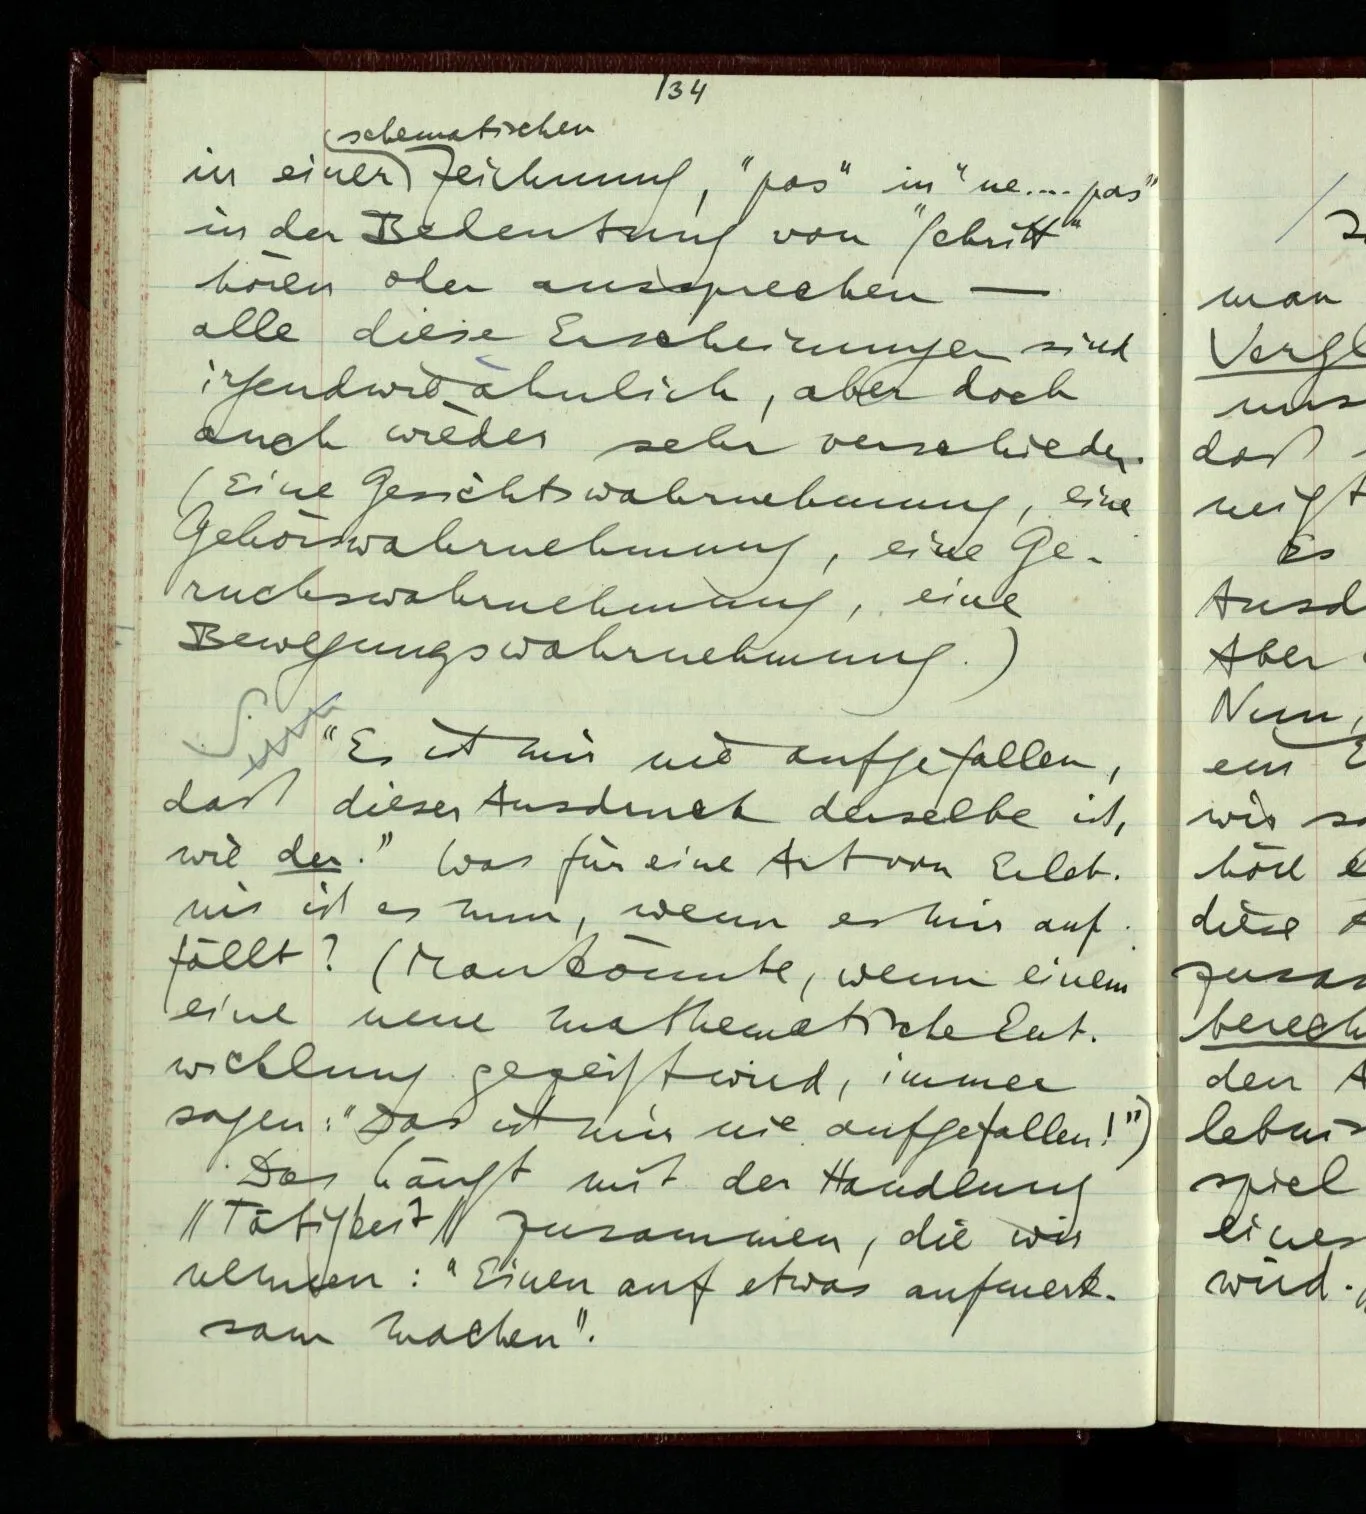 134
schematischen
in einer Zeichnung, "pas" in "ne.... pas"
in der Bedeutung von "Schritt"
hören oder aussprechen —
alle diese Erscheinungen sind
irgendwie ähnlich, aber doch
auch wieder sehr verschieden.
(Eine Gesichtswahrnehmung, eine
Gehörswahrnehmung, eine Ge-
ruchswahrnehmung, eine
Bewegungswahrnehmung.)
"Es ist mir nie aufgefallen,
daß dieser Ausdruck derselbe ist,
wie der." Was für eine Art von Erleb-
nis ist es nun, wenn es mir auf-
fällt? (Man könnte, wenn einem
eine neue mathematische Ent-
wicklung gezeigt wird, immer
sagen: "Das ist mir nie aufgefallen!")
Das hängt mit der Handlung
//Tätigkeit// zusammen, die wir
nennen: "Einen auf etwas aufmerk-
sam machen".
man
Vergl
uns
daß
neigt
Es
Ausd
Aber
Nun,
ein
wir
hört
diese
zusam
berech
den A
lebnis
spiel
eines
wird.